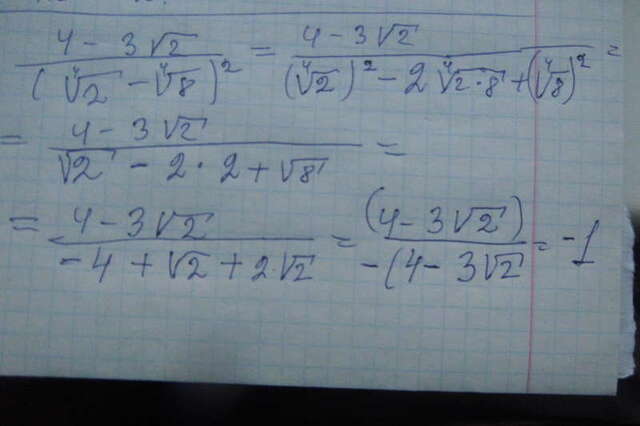 (4 - 3√2) / (∜2 - ∜8)² = (4 - 3√2) / ((∜2)² - 2∜(2·8) + (∜8)²) =
= (4 - 3√2) / (√2 - 2·2 + √8) =
= (4 - 3√2) / (-4 + √2 + 2√2) = (4 - 3√2) / -(4 - 3√2 = -1